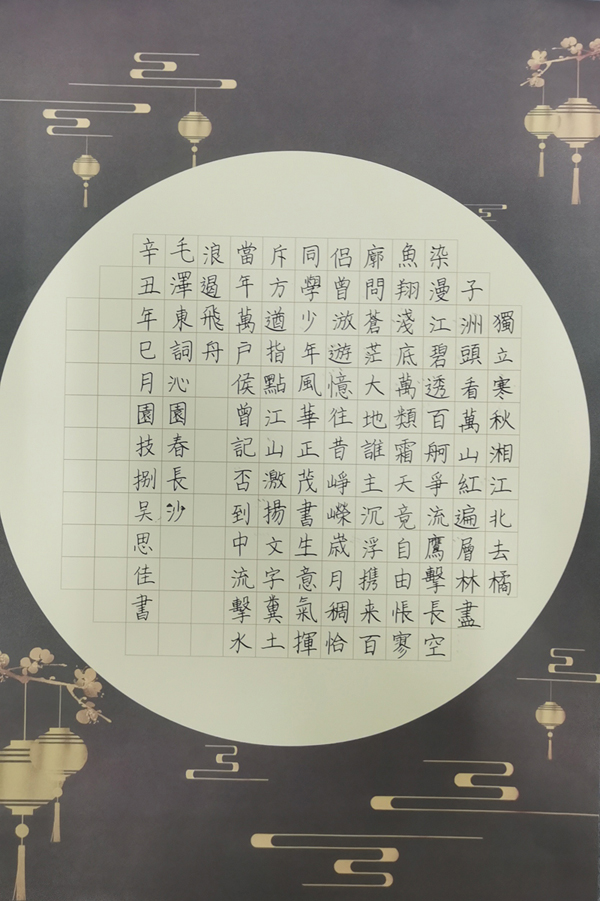 獨立寒秋湘江北去橘
子洲頭看萬山紅遍層林盡
染漫江碧透百舸爭流鷹擊長空
魚翔淺底萬類霜天竟自由悵寥
廓問蒼茫大地誰主沉浮携来百
侣曾遊憶往昔崢嶸歳月稠恰
同學少年風華正茂書生意氣揮
斥方遒指點江山激揚文字糞土
當年萬户侯曾記否到中流擊水
浪遏飛舟
毛澤東詞沁園春長沙
辛丑年巳月園技捌吴思佳書